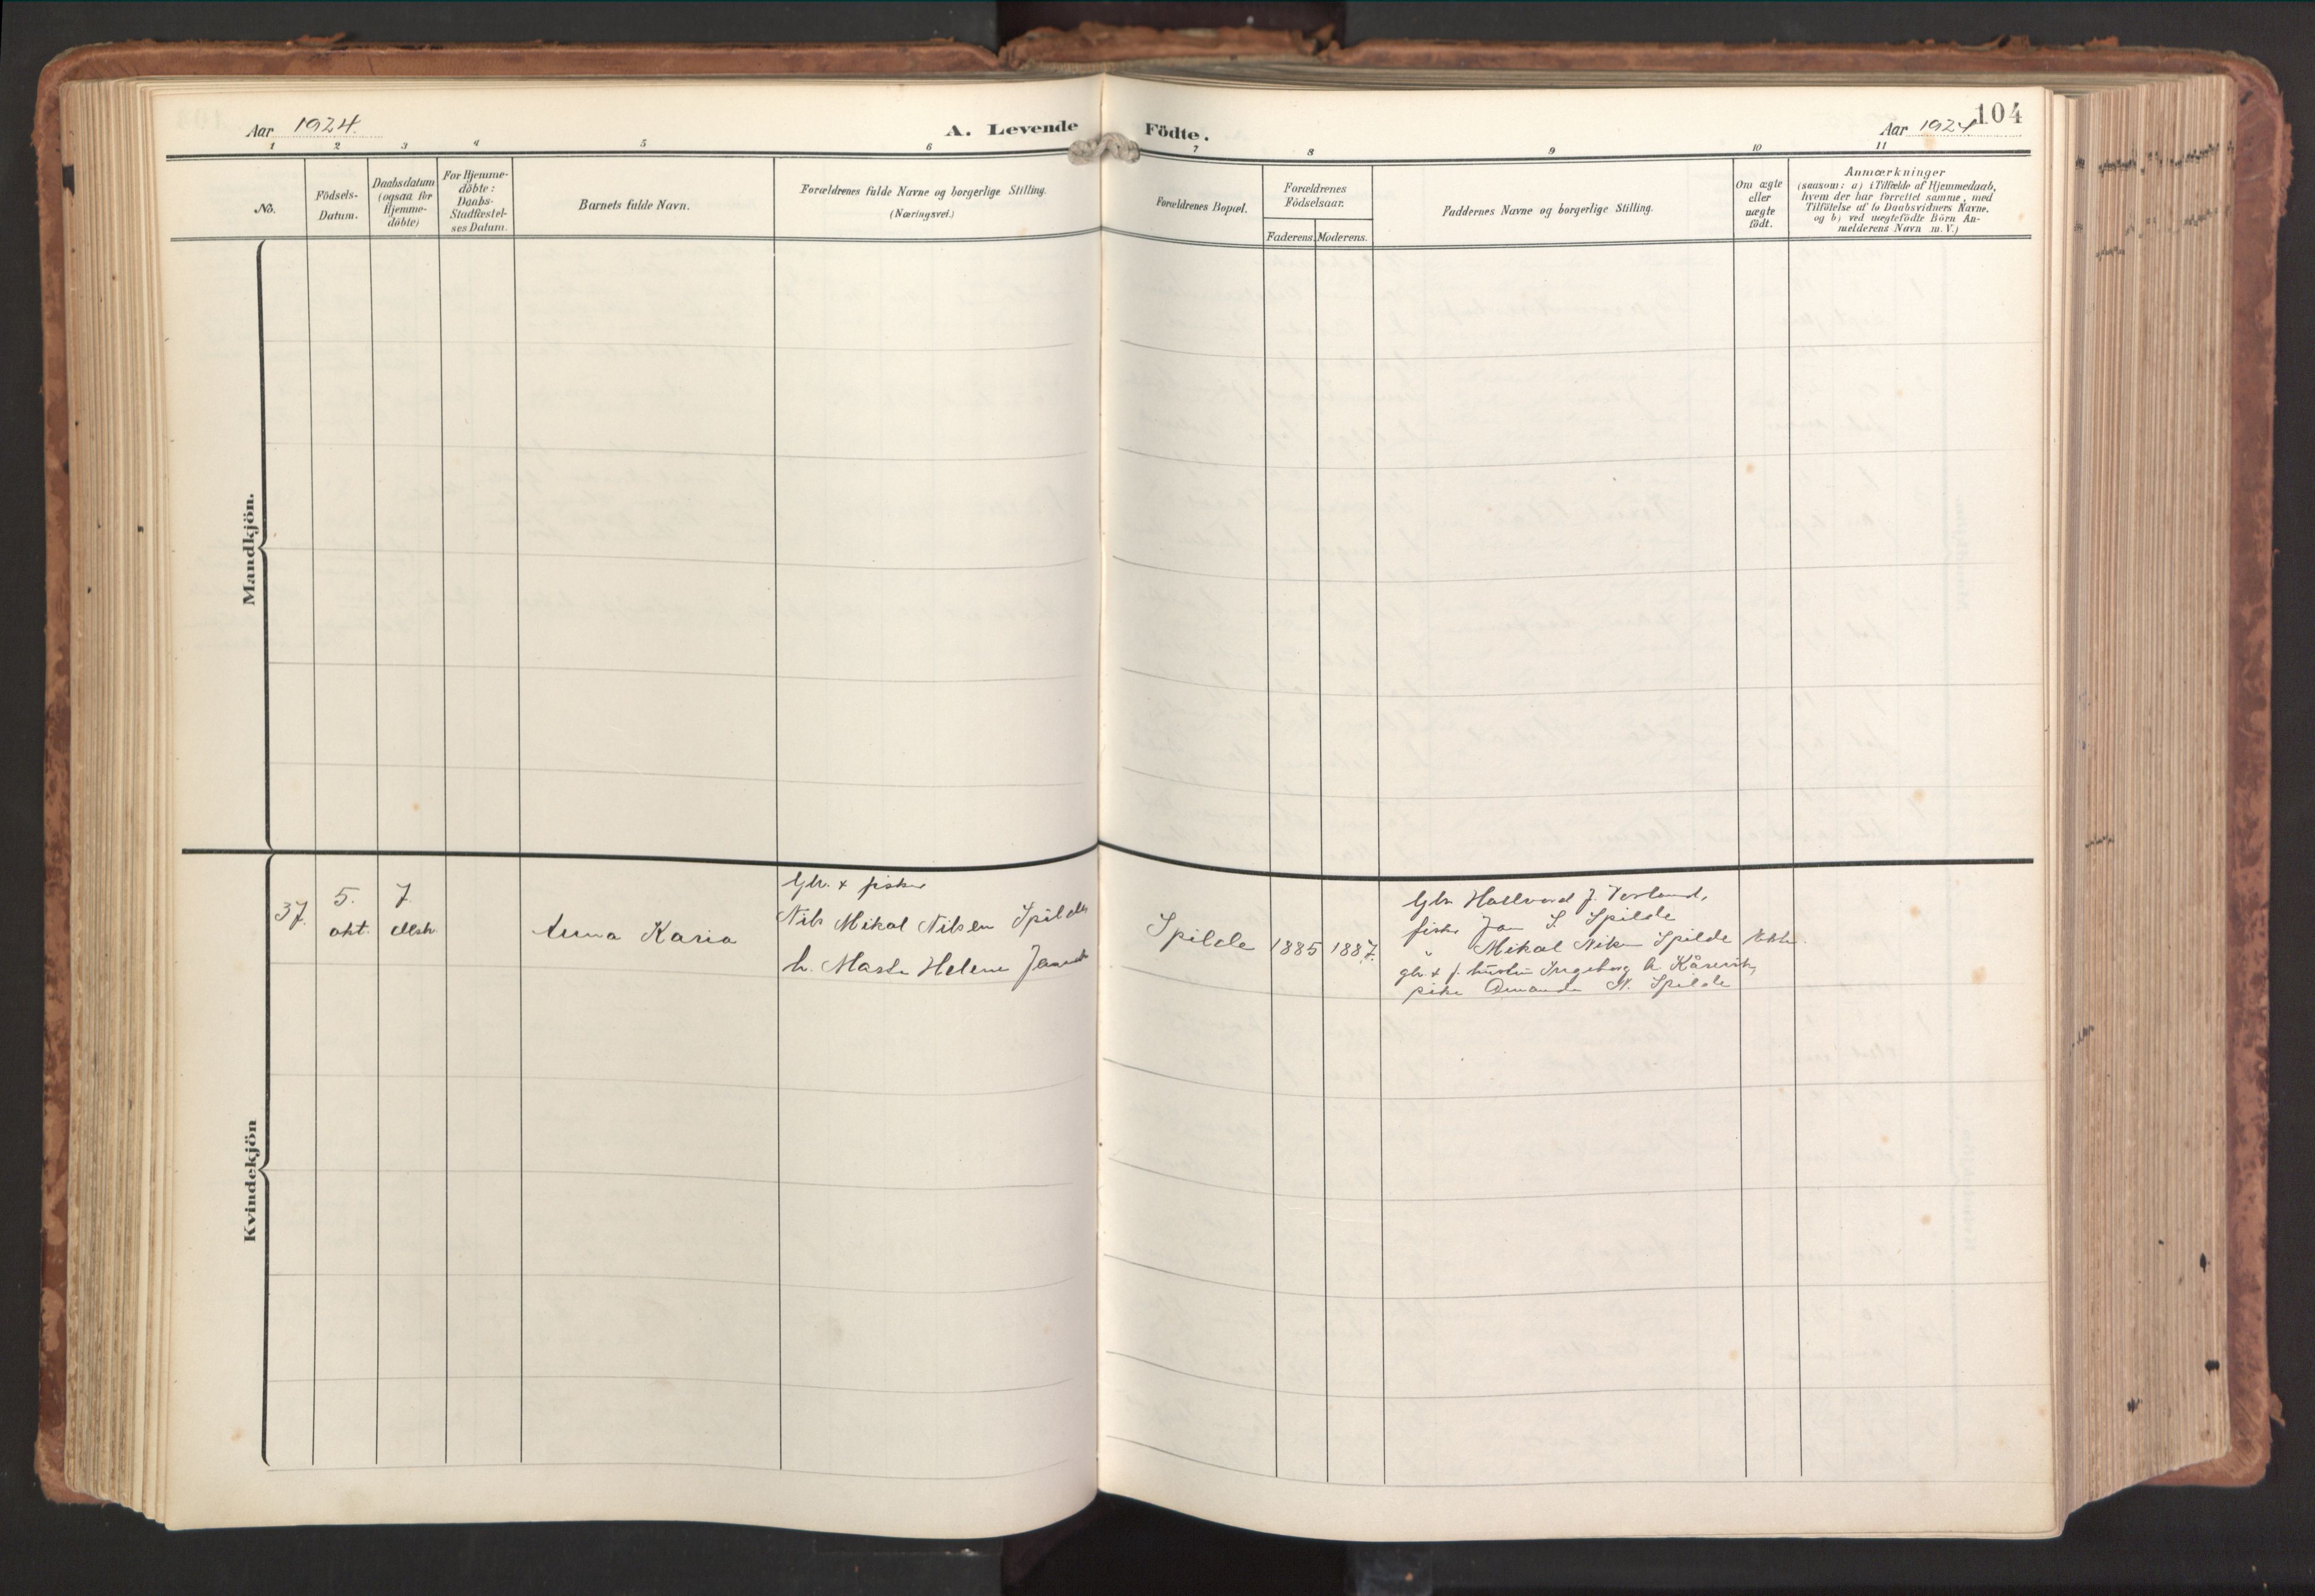 104
Aar 1924.
A. Levende Födte.
Aar 1924
1 2 3 4 5 6 7 8 9 10 11
No.
Födsels-
Datum.
Daabsdatum
(ogsaa for
Hjemme-
döbte)
For Hjemme-
döbte:
Daabs-
Stadfæstel-
ses Datum.
Barnets fulde Navn.
Forældrenes fulde Navne og borgerlige Stilling.
(Næringsvei.)
Forældrenes Bopæl.
Forældrenes
Födselsaar.
Faderens. Moderens.
Faddernes Navne og borgerlige Stilling.
Om ægte
eller
uægte
födt.
Anmærkninger
(saasom: a) i Tilfælde af Hjemmedaab,
hvem der har forrettet samme, med
Tilföielse af to Daabsvidners Navne.
og b) ved uægtefödte Börn An-
melderens Navn m. V.)
Mandkjön.
Kvindekjön
37.
5.
okt.
7.
Anna Karia
Gbr. + fisker
Nils Mikal Nilsen Spilde
h. Marta Helene
Spilde
1885
1887.
Gbr. Hallvard J.
fisker Jan S. Spilde
" Mikal Spilde
gbr. + f. hustru Ingeborg Kårevik,
pike Amanda N. Spilde
Ekte.